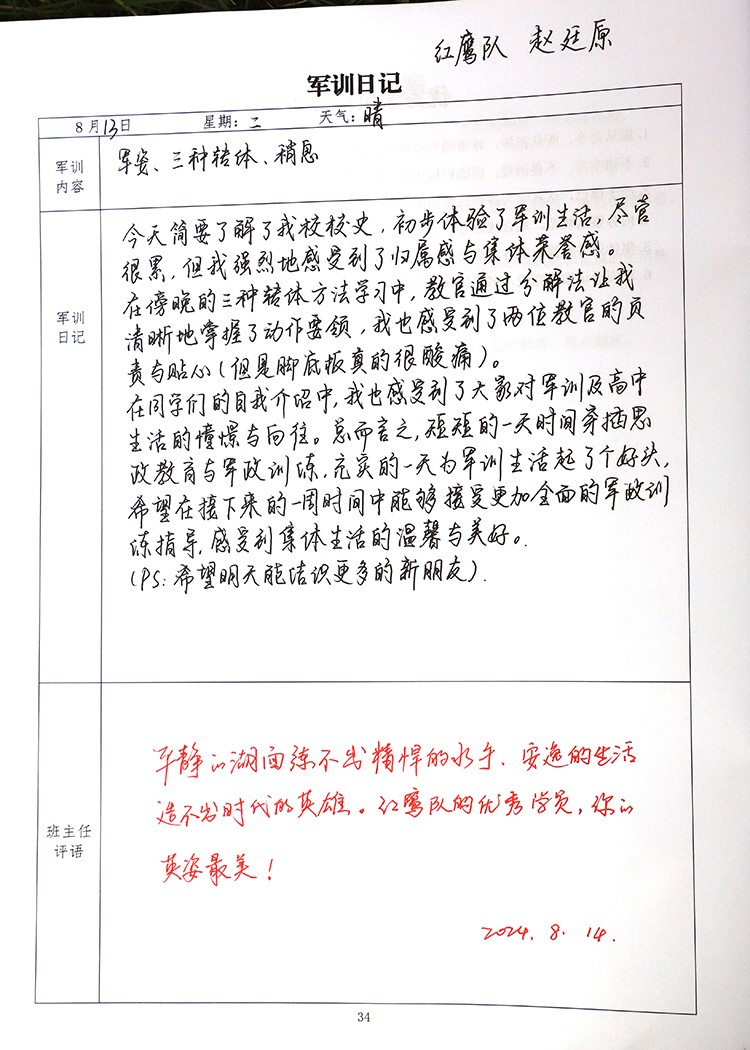 红鹰队 赵廷原
军训日记
8月13日 星期:二 天气:晴
军训
内容
军姿、三种转体、稍息
军训
日记
今天简要了解了我校校史，初步体验了军训生活，尽管
很累，但我强烈地感受到了归属感与集体荣誉感。
在傍晚的三种转体方法学习中，教官通过分解法让我
清晰地掌握了动作要领，我也感受到了两位教官的负
责与贴心(但是脚底板真的很酸痛)。
在同学们的自我介绍中，我也感受到了大家对军训及高中
生活的憧憬与向往。总而言之，短短的一天时间穿插思
政教育与军政训练，充实的一天为军训生活起了个好头，
希望在接下来的一周时间中能够接受更加全面的军政训
练指导，感受到集体生活的温馨与美好。
(PS:希望明天能结识更多的新朋友).
班主任
评语
平静的湖面练不出精悍的水手，安逸的生活
造不出时代的英雄。红鹰队的优秀学员，你的
英姿最美！
2024.8.14.
34